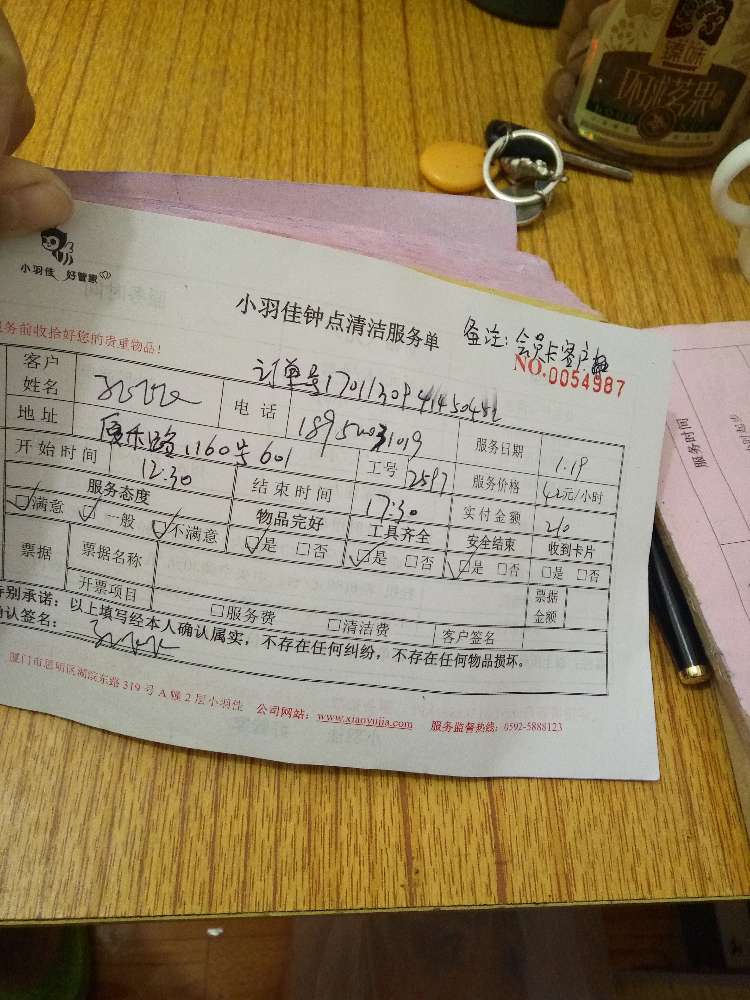 臻味
环球芝果
小羽佳 好管家
小羽佳钟点清洁服务单
备注:会员卡客户
务前收拾好您的贵重物品!
订单号170113094145045
NO.0054987
客户姓名
电话
服务日期 1.19
地址 160号601
工号 2597
服务价格 42元/小时
开始时间 12:30
结束时间 17:30
实付金额 210
服务态度 物品完好 工具齐全 安全结束 收到卡片
☑满意 ☑一般 ☑不满意 ☑是 □否 ☑是 □否 ☑是 □否 □是 □否
票据 票据名称 票据金额
开票项目 □服务费 □清洁费 客户签名
特别承诺:以上填写经本人确认属实,不存在任何纠纷,不存在任何物品损坏。
确认签名:
厦门市思明区湖滨东路319号A幢2层小羽佳 公司网站:www.xiaoyujia.com 服务监督热线:0592-5888123
服务时间